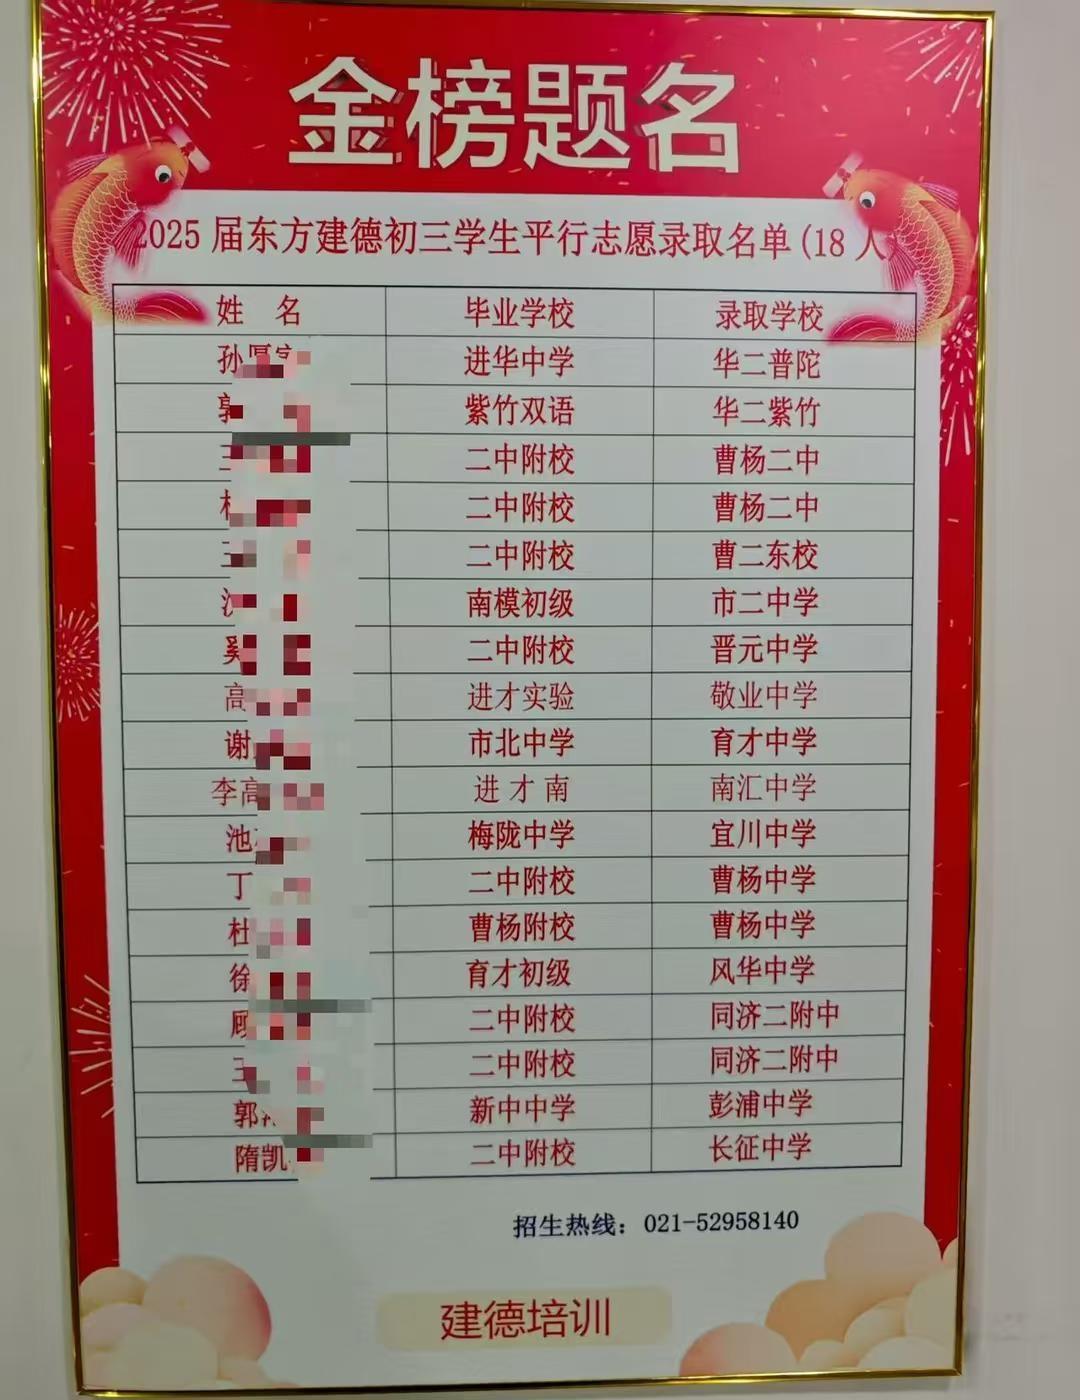 金榜题名
2025 届东方建德初三学生平行志愿录取名单(18 人)
姓 名 毕业学校 录取学校
孙 进华中学 华二普陀
郭 紫竹双语 华二紫竹
王 二中附校 曹杨二中
二中附校 曹杨二中
王 二中附校 曹二东校
南模初级 市二中学
奚 二中附校 晋元中学
高 进才实验 敬业中学
谢 市北中学 育才中学
李高 进 才 南 南汇中学
池 梅陇中学 宜川中学
丁 二中附校 曹杨中学
杜 曹杨附校 曹杨中学
徐 育才初级 风华中学
顾 二中附校 同济二附中
王 二中附校 同济二附中
郭 新中中学 彭浦中学
隋凯 二中附校 长征中学
招生热线：021-52958140
建德培训